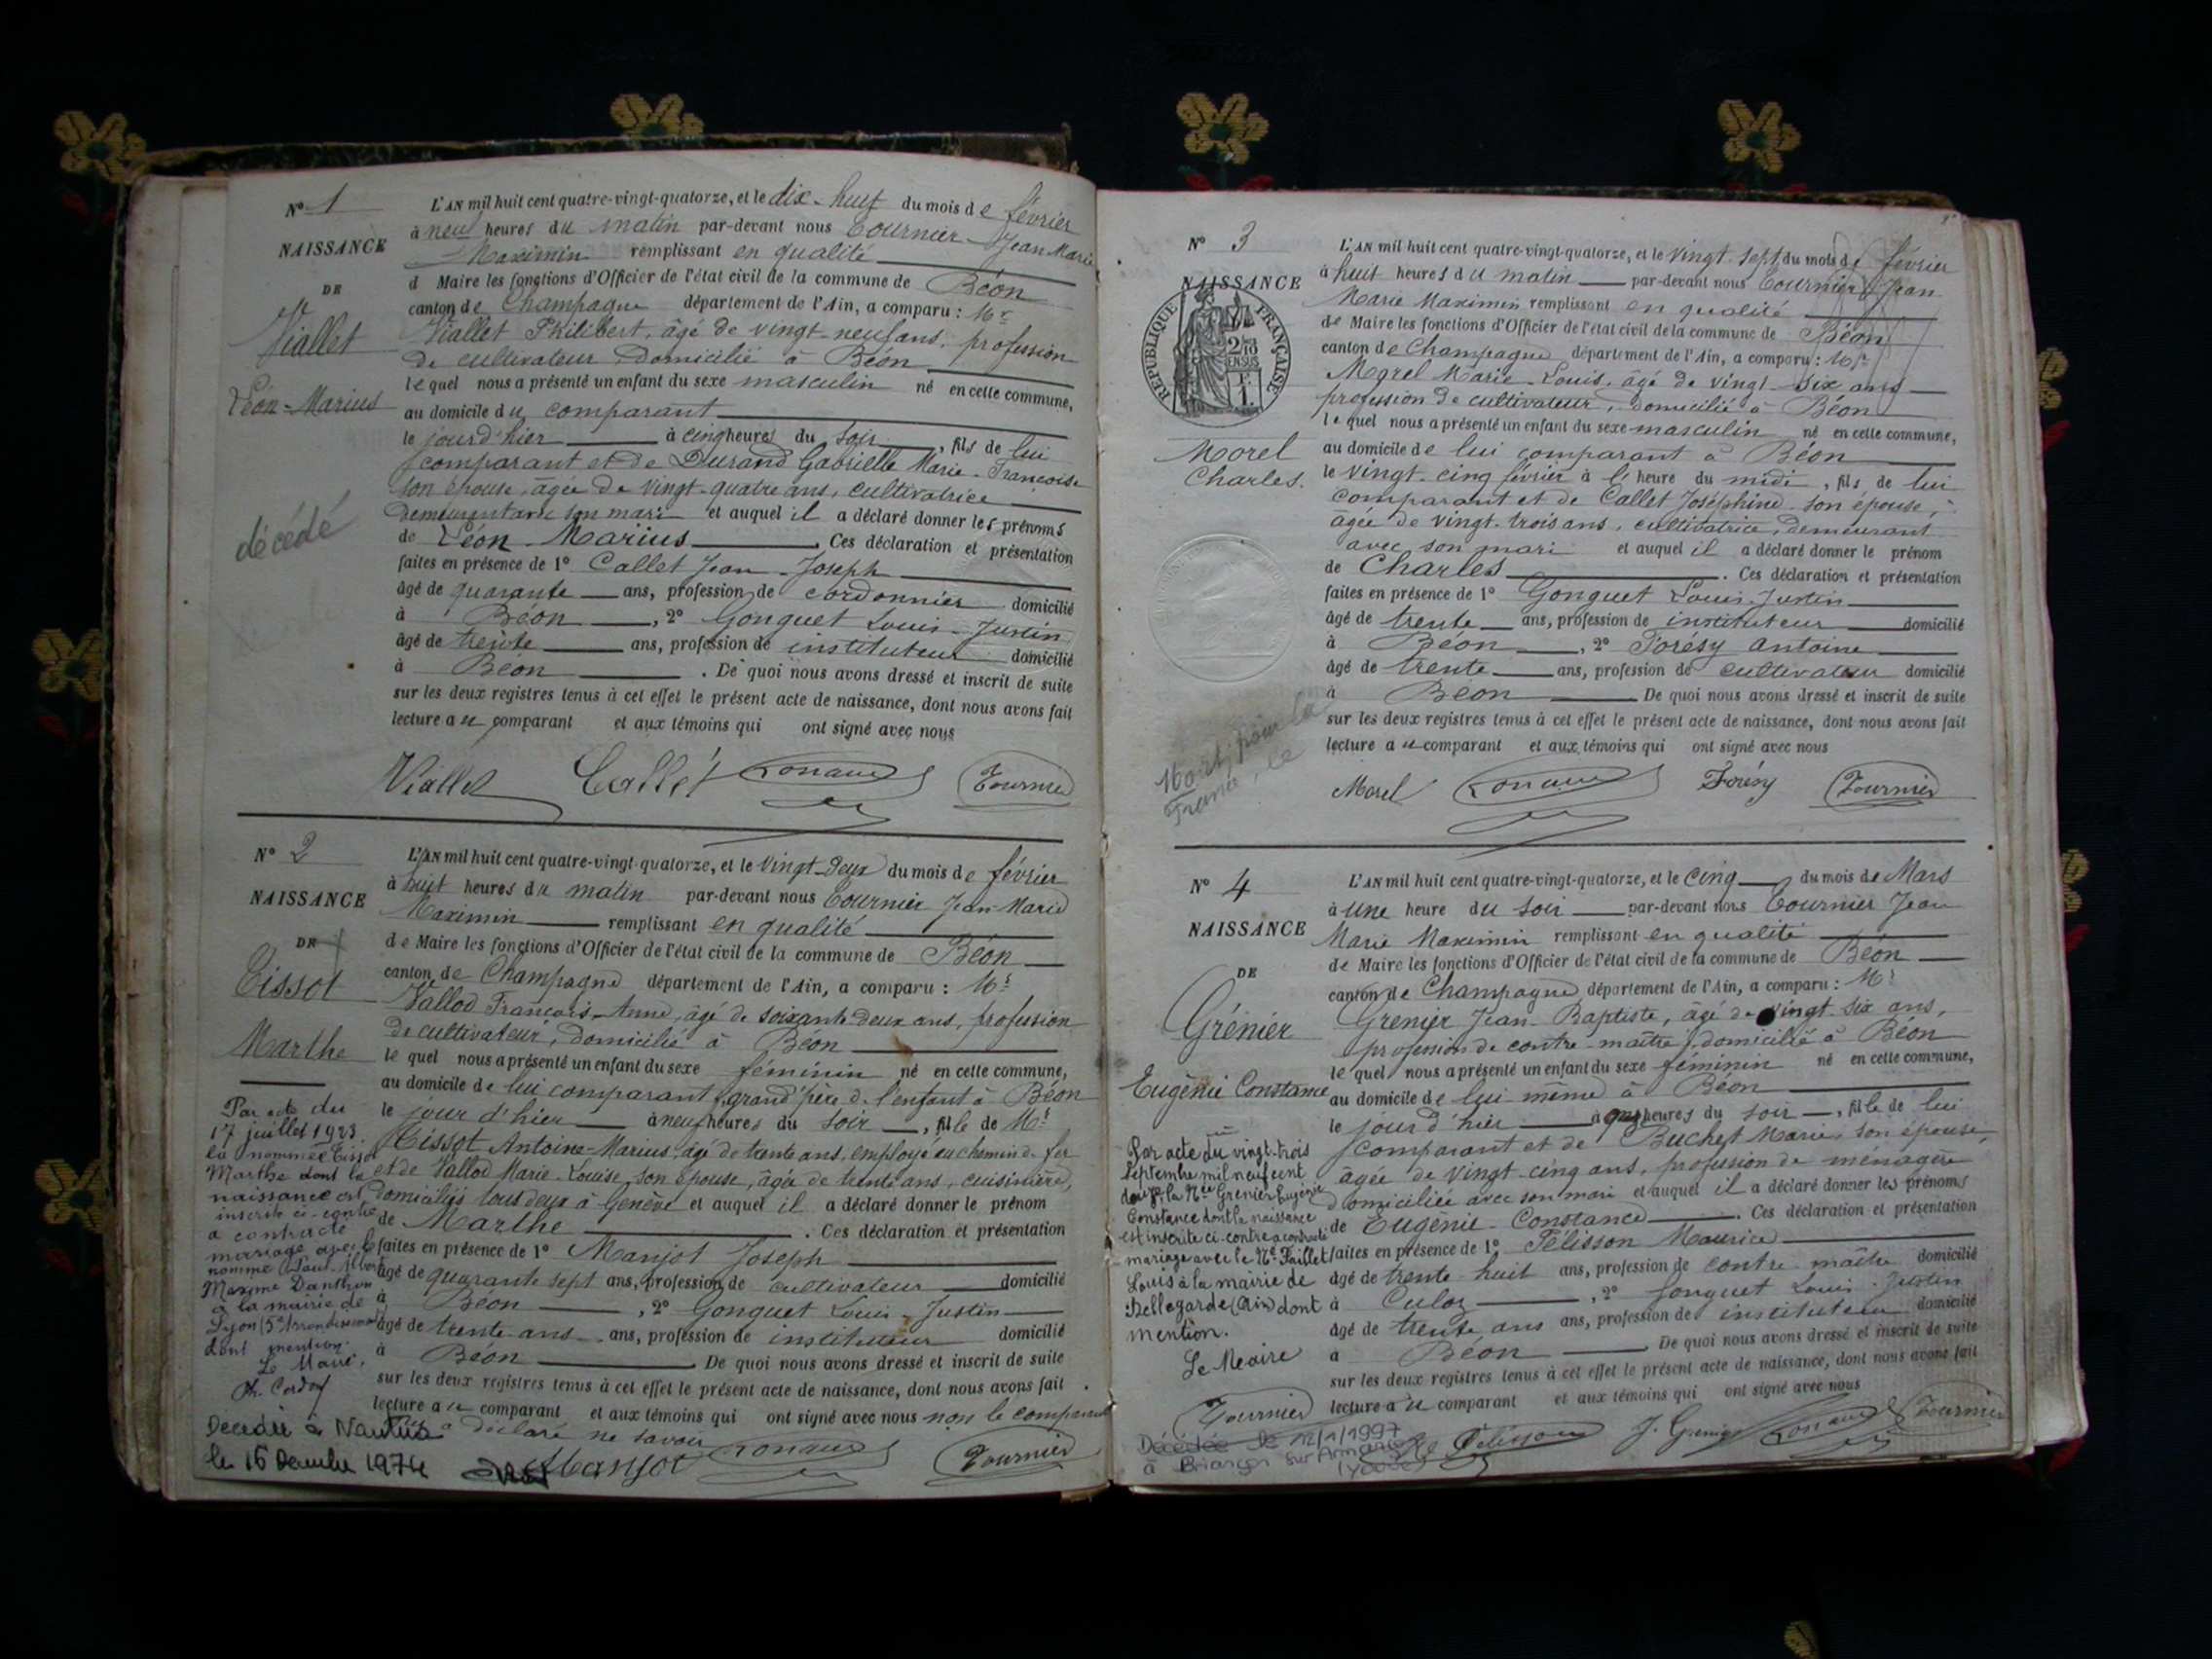 N° 1
NAISSANCE
DE
Viallet
Léon-Marius
décédé
L'AN mil huit cent quatre-vingt-quatorze, et le dix-huit du mois de février
à neuf heures du matin par-devant nous Tournier Jean Marie
Maximin remplissant en qualité
d Maire les fonctions d'Officier de l'état civil de la commune de Béon
canton de Champagne département de l'Ain, a comparu : Mr
Viallet Philibert, âgé de vingt-neuf ans, profession
de cultivateur domicilié à Béon
lequel nous a présenté un enfant du sexe masculin né en cette commune,
au domicile du comparant
le jourd'hier à cinq heures du soir, fils de lui
comparant et de Durand Gabrielle Marie-Françoise
son épouse, âgée de vingt-quatre ans, cultivatrice
demeurant avec son mari et auquel il a déclaré donner les prénoms
de Léon-Marius. Ces déclaration et présentation
faites en présence de 1° Callet Jean-Joseph
âgé de quarante ans, profession de cordonnier domicilié
à Béon, 2° Gonguet Louis-Justin
âgé de trente ans, profession de instituteur domicilié
à Béon. De quoi nous avons dressé et inscrit de suite
sur les deux registres tenus à cet effet le présent acte de naissance, dont nous avons fait
lecture au comparant et aux témoins qui ont signé avec nous
Viallet Callet Tournier
N° 2
NAISSANCE
DE
Tissot
Marthe
Par acte du
17 juillet 1923
la nommée Tissot
Marthe dont la
naissance est
inscrite ci-contre
a contracté
mariage avec le
nommé Paul-Albert
Maxime Danthon
à la mairie de
Lyon (5e Arrondissement)
dont mention.
Le Maire,
Décédée à Nantua
le 16 Décembre 1974
L'AN mil huit cent quatre-vingt-quatorze, et le vingt-deux du mois de février
à huit heures du matin par-devant nous Tournier Jean-Marie
Maximin remplissant en qualité
de Maire les fonctions d'Officier de l'état civil de la commune de Béon
canton de Champagne département de l'Ain, a comparu : Mr
Vallod François-Anne, âgé de soixante-deux ans, profession
de cultivateur, domicilié à Béon
lequel nous a présenté un enfant du sexe féminin né en cette commune,
au domicile de lui comparant, grand'père de l'enfant à Béon
le jour d'hier à neuf heures du soir, fille de Mr
Tissot Antoine-Marius, âgé de trente ans, employé au chemin de fer
et de Vallod Marie-Louise, son épouse, âgée de trente ans, cuisinière,
domiciliés tous deux à Genève et auquel il a déclaré donner le prénom
de Marthe. Ces déclaration et présentation
faites en présence de 1° Manjot Joseph
âgé de quarante sept ans, profession de cultivateur domicilié
à Béon, 2° Gonguet Louis-Justin
âgé de trente ans ans, profession de instituteur domicilié
à Béon. De quoi nous avons dressé et inscrit de suite
sur les deux registres tenus à cet effet le présent acte de naissance, dont nous avons fait
lecture au comparant et aux témoins qui ont signé avec nous non le comparant
qui a déclaré ne savoir
Manjot Tournier
2
N° 3
NAISSANCE
RÉPUBLIQUE FRANÇAISE
2/10 EN SUS
Morel
Charles.
Mort pour la
France, le
L'AN mil huit cent quatre-vingt-quatorze, et le vingt-sept du mois de février
à huit heures du matin par-devant nous Tournier Jean
Marie Maximin remplissant en qualité
de Maire les fonctions d'Officier de l'état civil de la commune de Béon
canton de Champagne département de l'Ain, a comparu : Mr
Morel Marie-Louis, âgé de vingt-six ans
profession de cultivateur, domicilié à Béon
lequel nous a présenté un enfant du sexe masculin né en cette commune,
au domicile de lui comparant à Béon
le vingt-cinq février à l'heure du midi, fils de lui
comparant et de Callet Joséphine son épouse,
âgée de vingt-trois ans, cultivatrice, demeurant
avec son mari et auquel il a déclaré donner le prénom
de Charles. Ces déclaration et présentation
faites en présence de 1° Gonguet Louis-Justin
âgé de trente ans, profession de instituteur domicilié
à Béon, 2° Forésy Antoine
âgé de trente ans, profession de cultivateur domicilié
à Béon De quoi nous avons dressé et inscrit de suite
sur les deux registres tenus à cet effet le présent acte de naissance, dont nous avons fait
lecture au comparant et aux témoins qui ont signé avec nous
Morel Forésy Tournier
N° 4
NAISSANCE
DE
Grénier
Eugénie Constance
Par acte du vingt-trois
Septembre mil neuf cent
douze, la Née Grenier Eugénie
Constance dont la naissance
est inscrite ci-contre a contracté
mariage avec le Né Faillet
Louis à la mairie de
Bellegarde (Ain) dont
mention.
Le Maire
Tournier
Décédée le 12/1/1997
à Briançon sur Armançon
(Yonne)
L'AN mil huit cent quatre-vingt-quatorze, et le cinq du mois de Mars
à une heure du soir par-devant nous Tournier Jean
Marie Maximin remplissant en qualité
de Maire les fonctions d'Officier de l'état civil de la commune de Béon
canton de Champagne département de l'Ain, a comparu : Mr
Grenier Jean-Baptiste, âgé de vingt-six ans,
profession de contre-maître, domicilié à Béon
lequel nous a présenté un enfant du sexe féminin né en cette commune,
au domicile de lui même à Béon
le jour d'hier à onze heures du soir, fille de lui
comparant et de Buchet Marie, son épouse,
âgée de vingt-cinq ans, profession de ménagère
domiciliée avec son mari et auquel il a déclaré donner les prénoms
de Eugénie-Constance. Ces déclaration et présentation
faites en présence de 1° Pélisson Maurice
âgé de trente-huit ans, profession de contre maître domicilié
à Culoz, 2° Gonguet Louis-Justin
âgé de trente ans ans, profession de instituteur domicilié
à Béon De quoi nous avons dressé et inscrit de suite
sur les deux registres tenus à cet effet le présent acte de naissance, dont nous avons fait
lecture au comparant et aux témoins qui ont signé avec nous
Pélisson J. Grenier Tournier